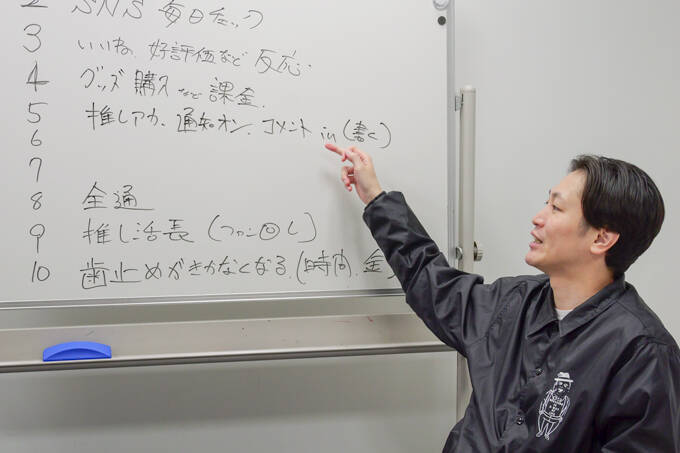 2 SNS 毎日チェック
3 いいね、好評価など 反応
4 グッズ 購入 など 課金、
5 推しアカ、通知オン、コメント in (書く)
6
7
8 全通
9 推し活長 (ファン回し)
10 歯止めがきかなくなる、(時間、金